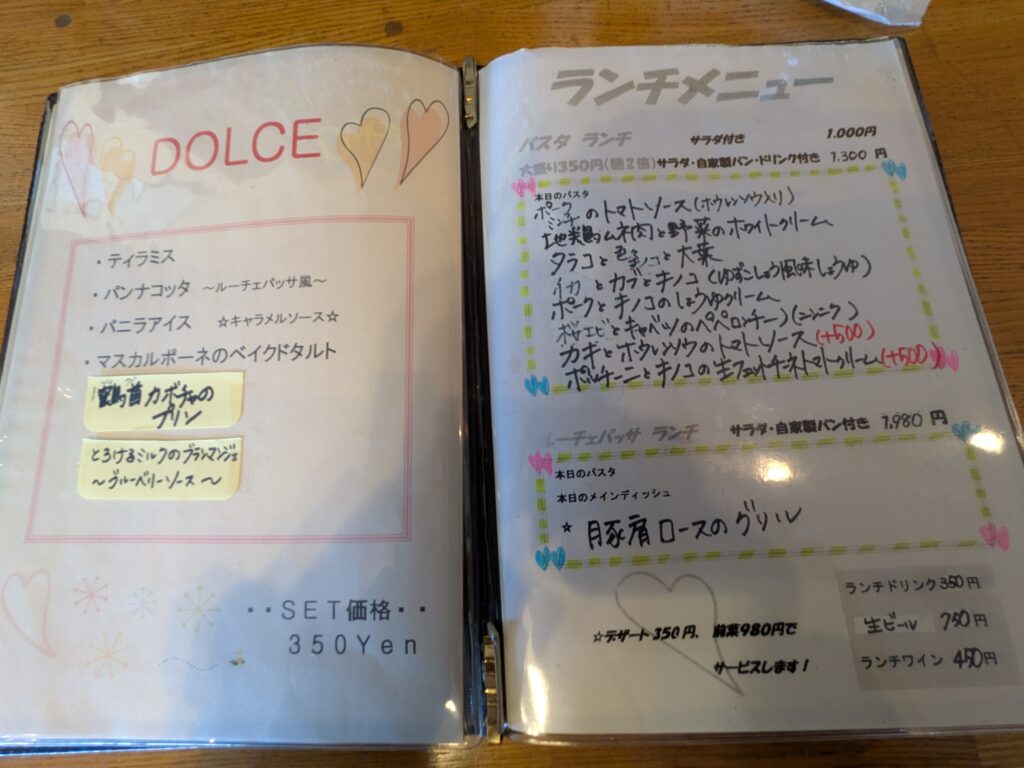 DOLCE
・ティラミス
・パンナコッタ ～ルーチェパッサ風～
・バニラアイス ☆キャラメルソース☆
・マスカルポーネのベイクドタルト
鶴首カボチャの
プリン
とろけるミルクのブランマンジェ
～ブルーベリーソース～
・・SET価格・・
350Yen
ランチメニュー
パスタ ランチ サラダ付き 1,000円
大盛り350円(麺2倍)サラダ・自家製パン・ドリンク付き 1,300 円
本日のパスタ
ポークミンチのトマトソース(ホウレンソウ入り)
地鶏ムネ肉と野菜のホワイトクリーム
タラコと キノコと大葉
イカとカブとキノコ(ゆずこしょう風味しょうゆ)
ポークとキノコのしょうゆクリーム
桜エビとキャベツのペペロンチーノ(ニンニク)
カキとホウレンソウのトマトソース(+500)
ポルチーニとキノコの生フェットチーネトマトクリーム(+500)
ルーチェパッサ ランチ サラダ・自家製パン付き 1,980 円
本日のパスタ
本日のメインディッシュ
☆ 豚肩ロースのグリル
ランチドリンク350円
生ビール 750円
ランチワイン 450円
☆デザート350円、前菜980円で
サービスします!